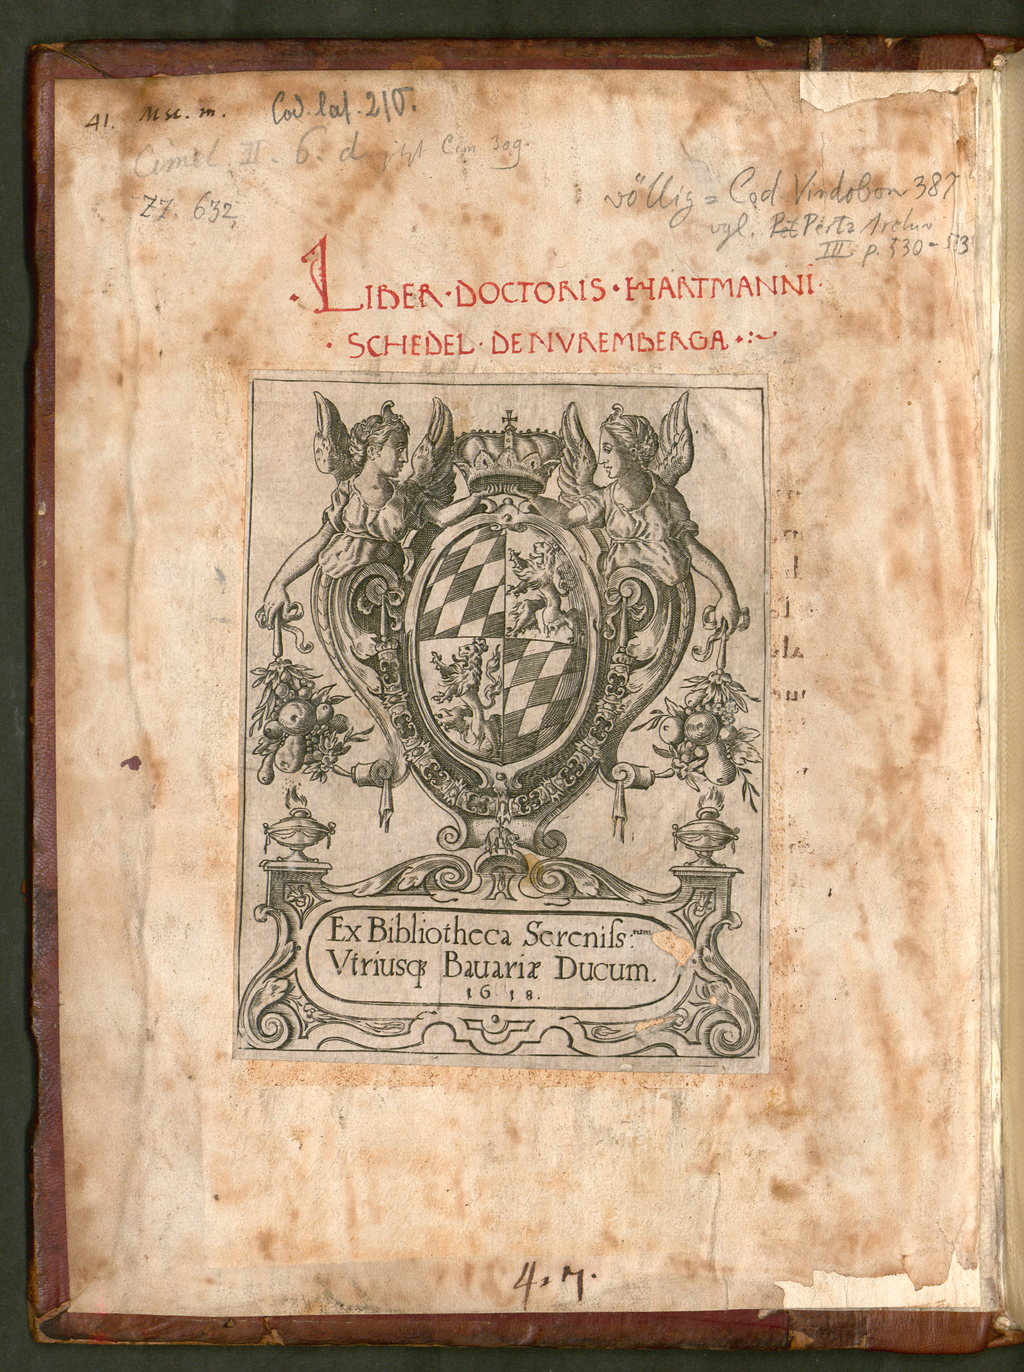 41. Msc. m. Cod. lat. 210.
Cimel. II. 6. d jetzt Cim 309.
ZZ. 632
völlig = Cod Vindobon 387
vgl. Pertz Archiv
III p. 330 - 573
LIBER · DOCTORIS · HARTMANNI ·
· SCHEDEL · DE NVREMBERGA ·:~
Ex Bibliotheca Sereniſs:rum
Vtriusqꝫ Bauariæ Ducum.
1618.
4. 7.